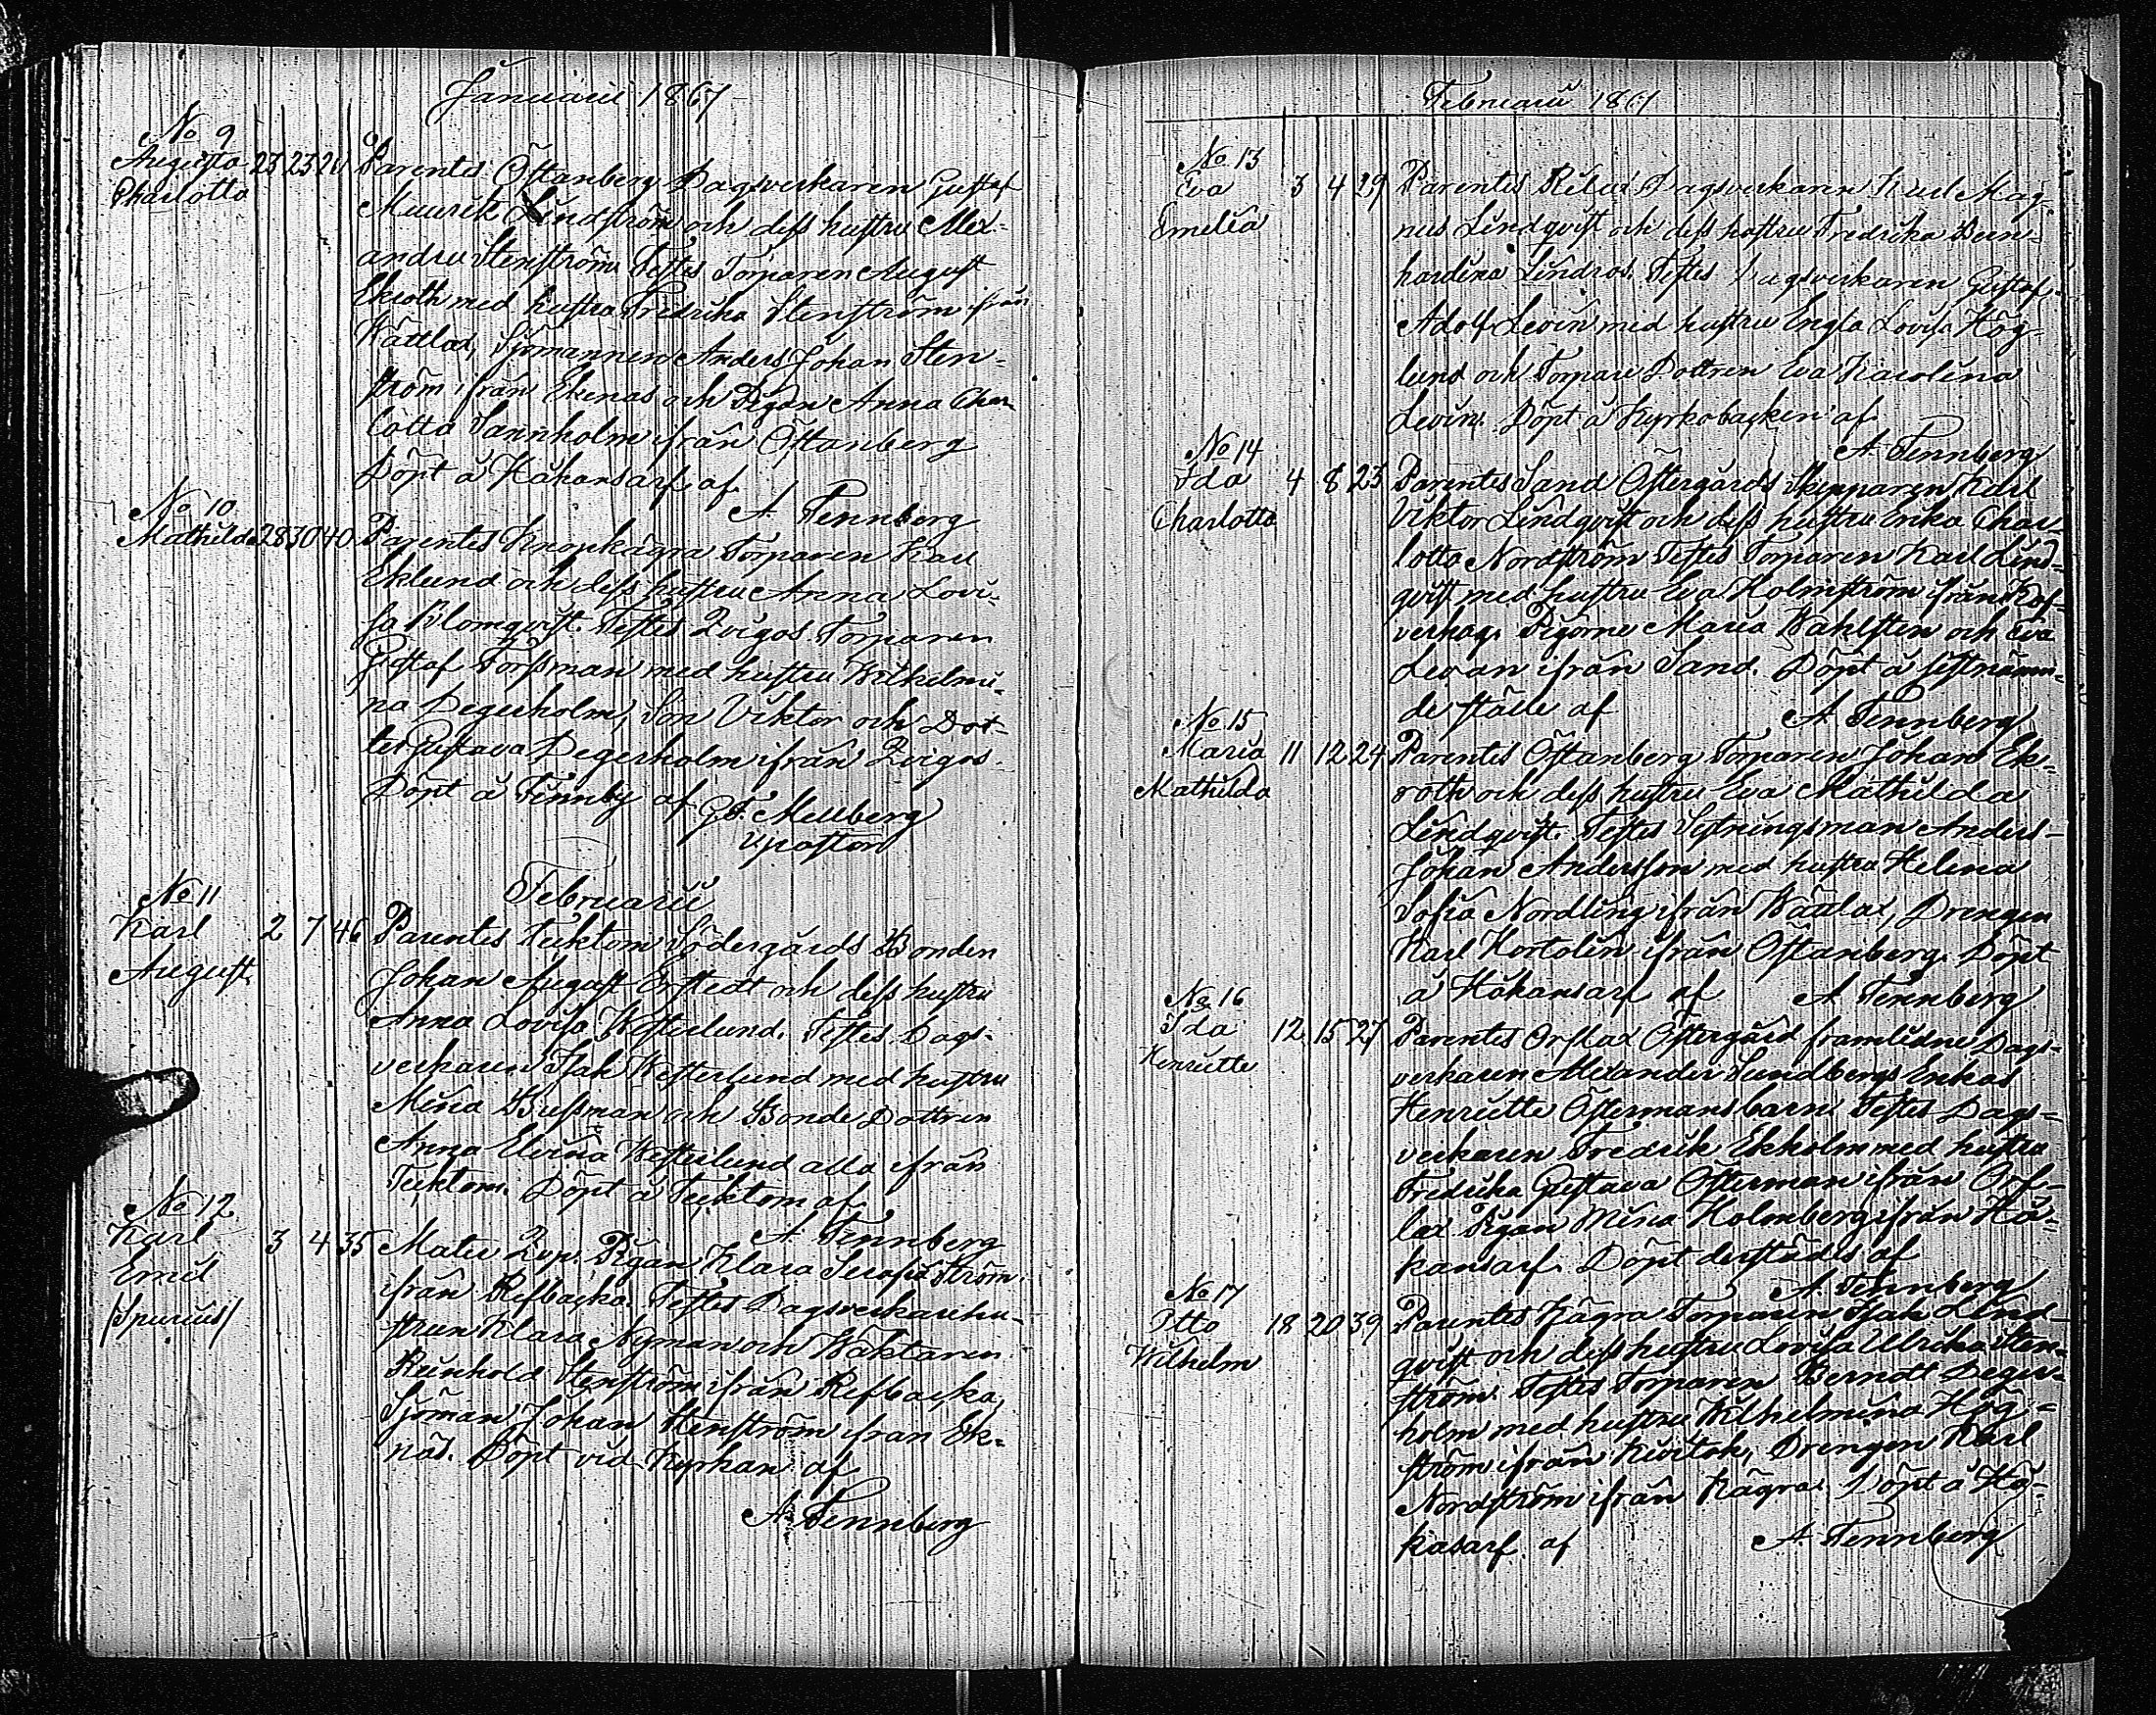 Januarii 1867
No 9
Augusta 23 23 20 Parentes Östanberg Dagsverkaren Gustaf
Charlotta
Maurits Lindström och dess hustru Alex-
andra Stenström Testes Torparen August
Ekroth med hustru Fredrika Stenström ifrån
Wättlax, Sjömannen Anders Johan Sten-
ström ifrån Ekenäs och Pigan Anna Char-
lotta Sannholm ifrån Östanberg
Döpt å Håkansarf af
A. Tennberg
No 10
Mathilda 28 30 40 Parentes Knopkägra Torparen Karl
Eklund och dess hustru Anna Lovi-
sa Blomqvist. Testes Zvigos Torparen
Gustaf Forssman med hustru Wilhelmi-
na Degerholm, Son Viktor och Dot-
ter Gustava Degerholm ifrån Zvigos.
Döpt å Finnby af G. F. Mellberg
Februarii
No 11
Karl 2 7 46 Parentes Tecktom Södergårds Bonden
August
Johan August Erstedt och dess hustru
Anna Lovisa Westerlund. Testes Dags-
verkaren Isak Westerlund med hustru
Mina Bussman och Bonde Dottren
Anna Elvina Westerlund alla ifrån
Tecktom. Döpt å Tecktom af
A. Tennberg
No 12
Karl 3 4 35 Mater Pigan Klara Serafia Ström
Emil
/Spurius/
ifrån Refbacka. Testes Dagsverkarehu-
strun Klara Nyman och Waktaren
Reinhold Stenström ifrån Refbacka,
Sjöman Johan Stenström ifrån Ek-
näs. Döpt vid Kyrkan af
A. Tennberg
Februarii 1867
No 13
Eva 3 4 29 Parentes Rilax Dagsverkaren Karl Mag-
Emelia
nus Lindqvist och dess hustru Fredrika Bern-
hardina Lindros. Testes Dagsverkaren Gustaf
Adolf Levin med hustru Engla Lovisa Hög-
lund och Torpare Dottren Eva Karolina
Levin. Döpt å Kyrkobacken af
A. Tennberg
No 14
Ida 4 8 23 Parentes Sand Östergårds Skepparen Karl
Charlotta
Viktor Lindqvist och dess hustru Erika Char-
lotta Nordström Testes Torparen Karl Lind-
qvist med hustru Eva Holmström ifrån Kof-
verhag. Pigorne Maria Wahlsten och Eva
Levan ifrån Sand. Döpt å sistnämn-
de ställe af A. Tennberg
No 15
Maria 11 12 24 Parentes Östanberg Torparen Johan Ek-
Mathilda
roth och dess hustru Eva Mathilda
Lindqvist. Testes Sextningsman Anders
Johan Andersson med hustru Helena
Sofia Nordling ifrån Wättlax, Drengen
Karl Hortolin ifrån Östanberg. Döpt
å Håkansarf af A. Tennberg
No 16
Ida 12 15 27 Parentes Orslax Östergård framlidne Dags-
Henriette
verkaren Alexander Sundbergs Enkas
Henriette Östermans barn. Testes Dags-
verkaren Fredrik Ekholm med hustru
Fredrika Gustava Österman ifrån Ors-
lax Pigan Mina Holmberg ifrån Hå-
kansarf. Döpt derstädes af
A. Tennberg
No 17
Otto 18 20 39 Parentes Kägra Torparen Isak Lind-
Wilhelm
qvist och dess hustru Lovisa Ulrika Sten-
ström. Testes Torparen Berndt Deger-
holm med hustru Wilhelmina Hög-
ström ifrån Kuitok, Drengen Karl
Nordström ifrån Kägra. Döpt å Hå-
kasarf. af A. Tennberg